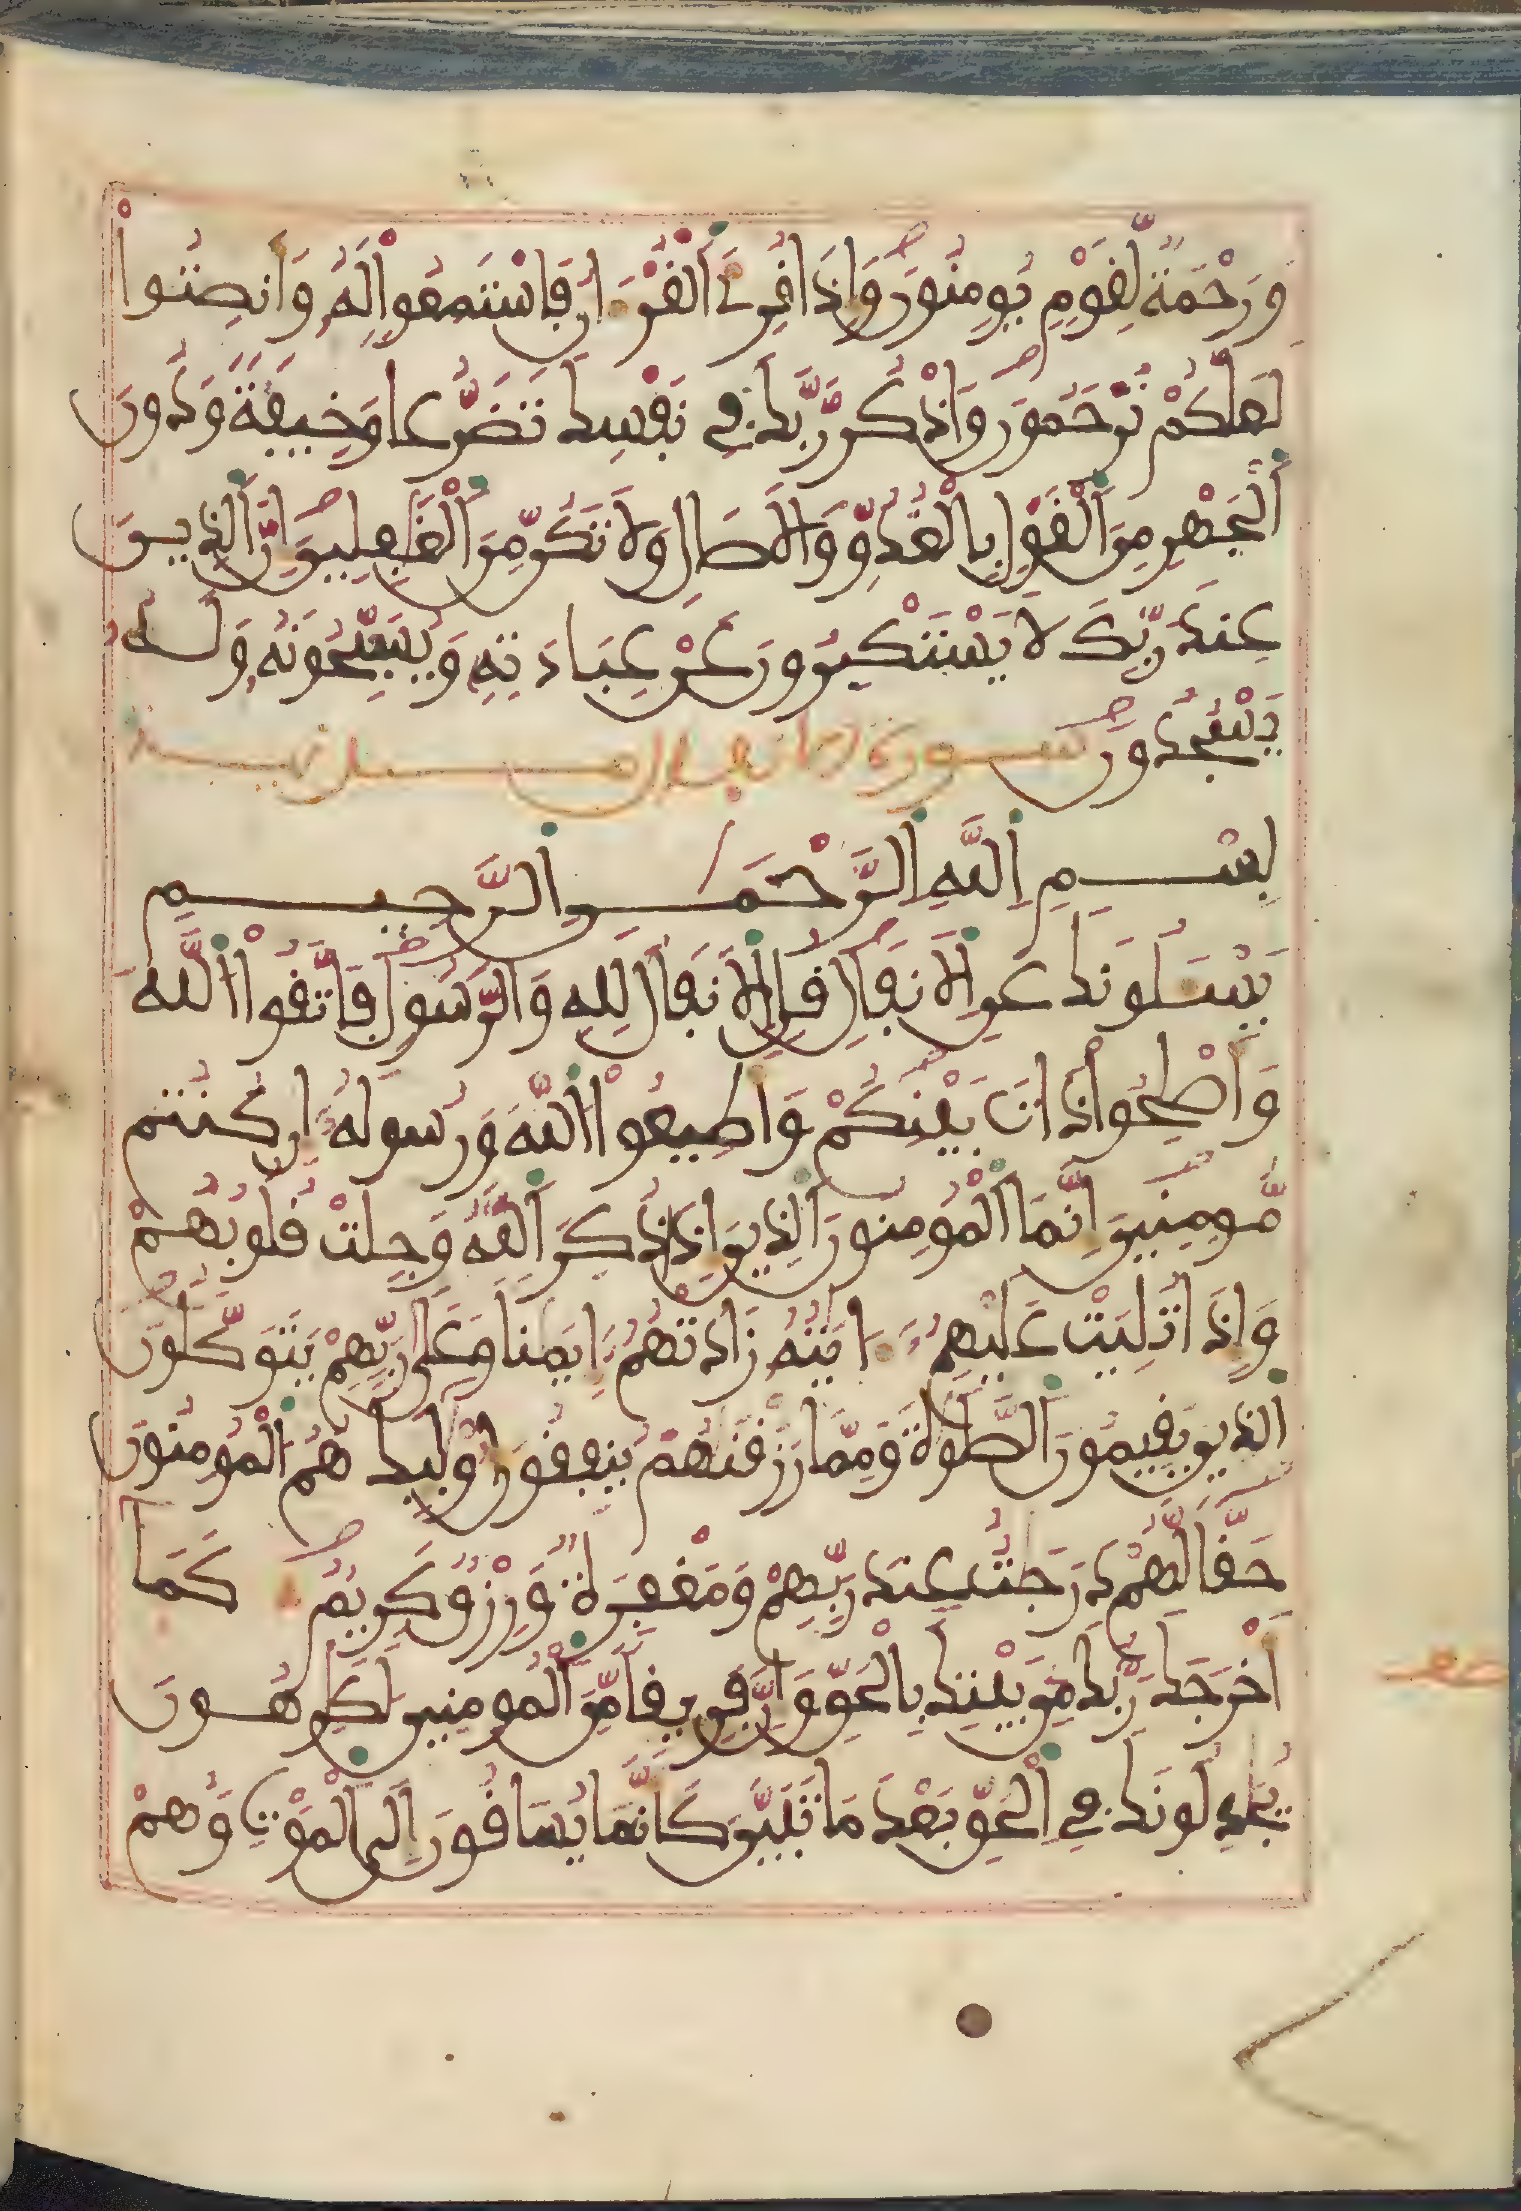 وَرَحْمَةٌ لِّقَوْمٍ يُومِنُونَ وَإِذَا قُرِئَ اَلْقُرْءَانُ فَاسْتَمِعُواْ لَهُۥ وَأَنصِتُواْ
لَعَلَّكُمْ تُرْحَمُونَ وَاذْكُر رَّبَّكَ فِي نَفْسِكَ تَضَرُّعاً وَخِيفَةً وَدُونَ
اَلْجَهْرِ مِنَ اَلْقَوْلِ بِالْغُدُوِّ وَالَاصَالِ وَلَا تَكُن مِّنَ اَلْغَٰفِلِينَ إِنَّ اَلذِينَ
عِندَ رَبِّكَ لَا يَسْتَكْبِرُونَ عَنْ عِبَادَتِهِۦ وَيُسَبِّحُونَهُۥ وَلَهُۥ
يَسْجُدُونَ سورة الانفال مدنية
بِسْمِ اِللَّهِ اِلرَّحْمَٰنِ اِلرَّحِيمِ
يَسْـَٔلُونَكَ عَنِ اِلَانفَالِ قُلِ اِلَانفَالُ لِلهِ وَالرَّسُولِ فَاتَّقُواْ اُللَّهَ
وَأَصْلِحُواْ ذَاتَ بَيْنِكُمْ وَأَطِيعُواْ اُللَّهَ وَرَسُولَهُۥ إِن كُنتُم
مُّومِنِينَ إِنَّمَا اَلْمُومِنُونَ اَلذِينَ إِذَا ذُكِرَ اَللَّهُ وَجِلَتْ قُلُوبُهُمْ
وَإِذَا تُلِيَتْ عَلَيْهِمُۥ ءَايَٰتُهُۥ زَادَتْهُمُۥ إِيمَٰناً وَعَلَىٰ رَبِّهِمْ يَتَوَكَّلُونَ
اَلذِينَ يُقِيمُونَ اَلصَّلَوٰةَ وَمِمَّا رَزَقْنَٰهُمْ يُنفِقُونَ أُوْلَٰٓئِكَ هُمُ اُلْمُومِنُونَ
حَقّاً لَّهُمْ دَرَجَٰتٌ عِندَ رَبِّهِمْ وَمَغْفِرَةٌ وَرِزْقٌ كَرِيمٌ كَمَا
أَخْرَجَكَ رَبُّكَ مِنۢ بَيْتِكَ بِالْحَقِّ وَإِنَّ فَرِيقاً مِّنَ اَلْمُومِنِينَ لَكَٰرِهُونَ
يُجَٰدِلُونَكَ فِي اِلْحَقِّ بَعْدَ مَا تَبَيَّنَ كَأَنَّمَا يُسَاقُونَ إِلَى اَلْمَوْتِ وَهُمْ
نصف